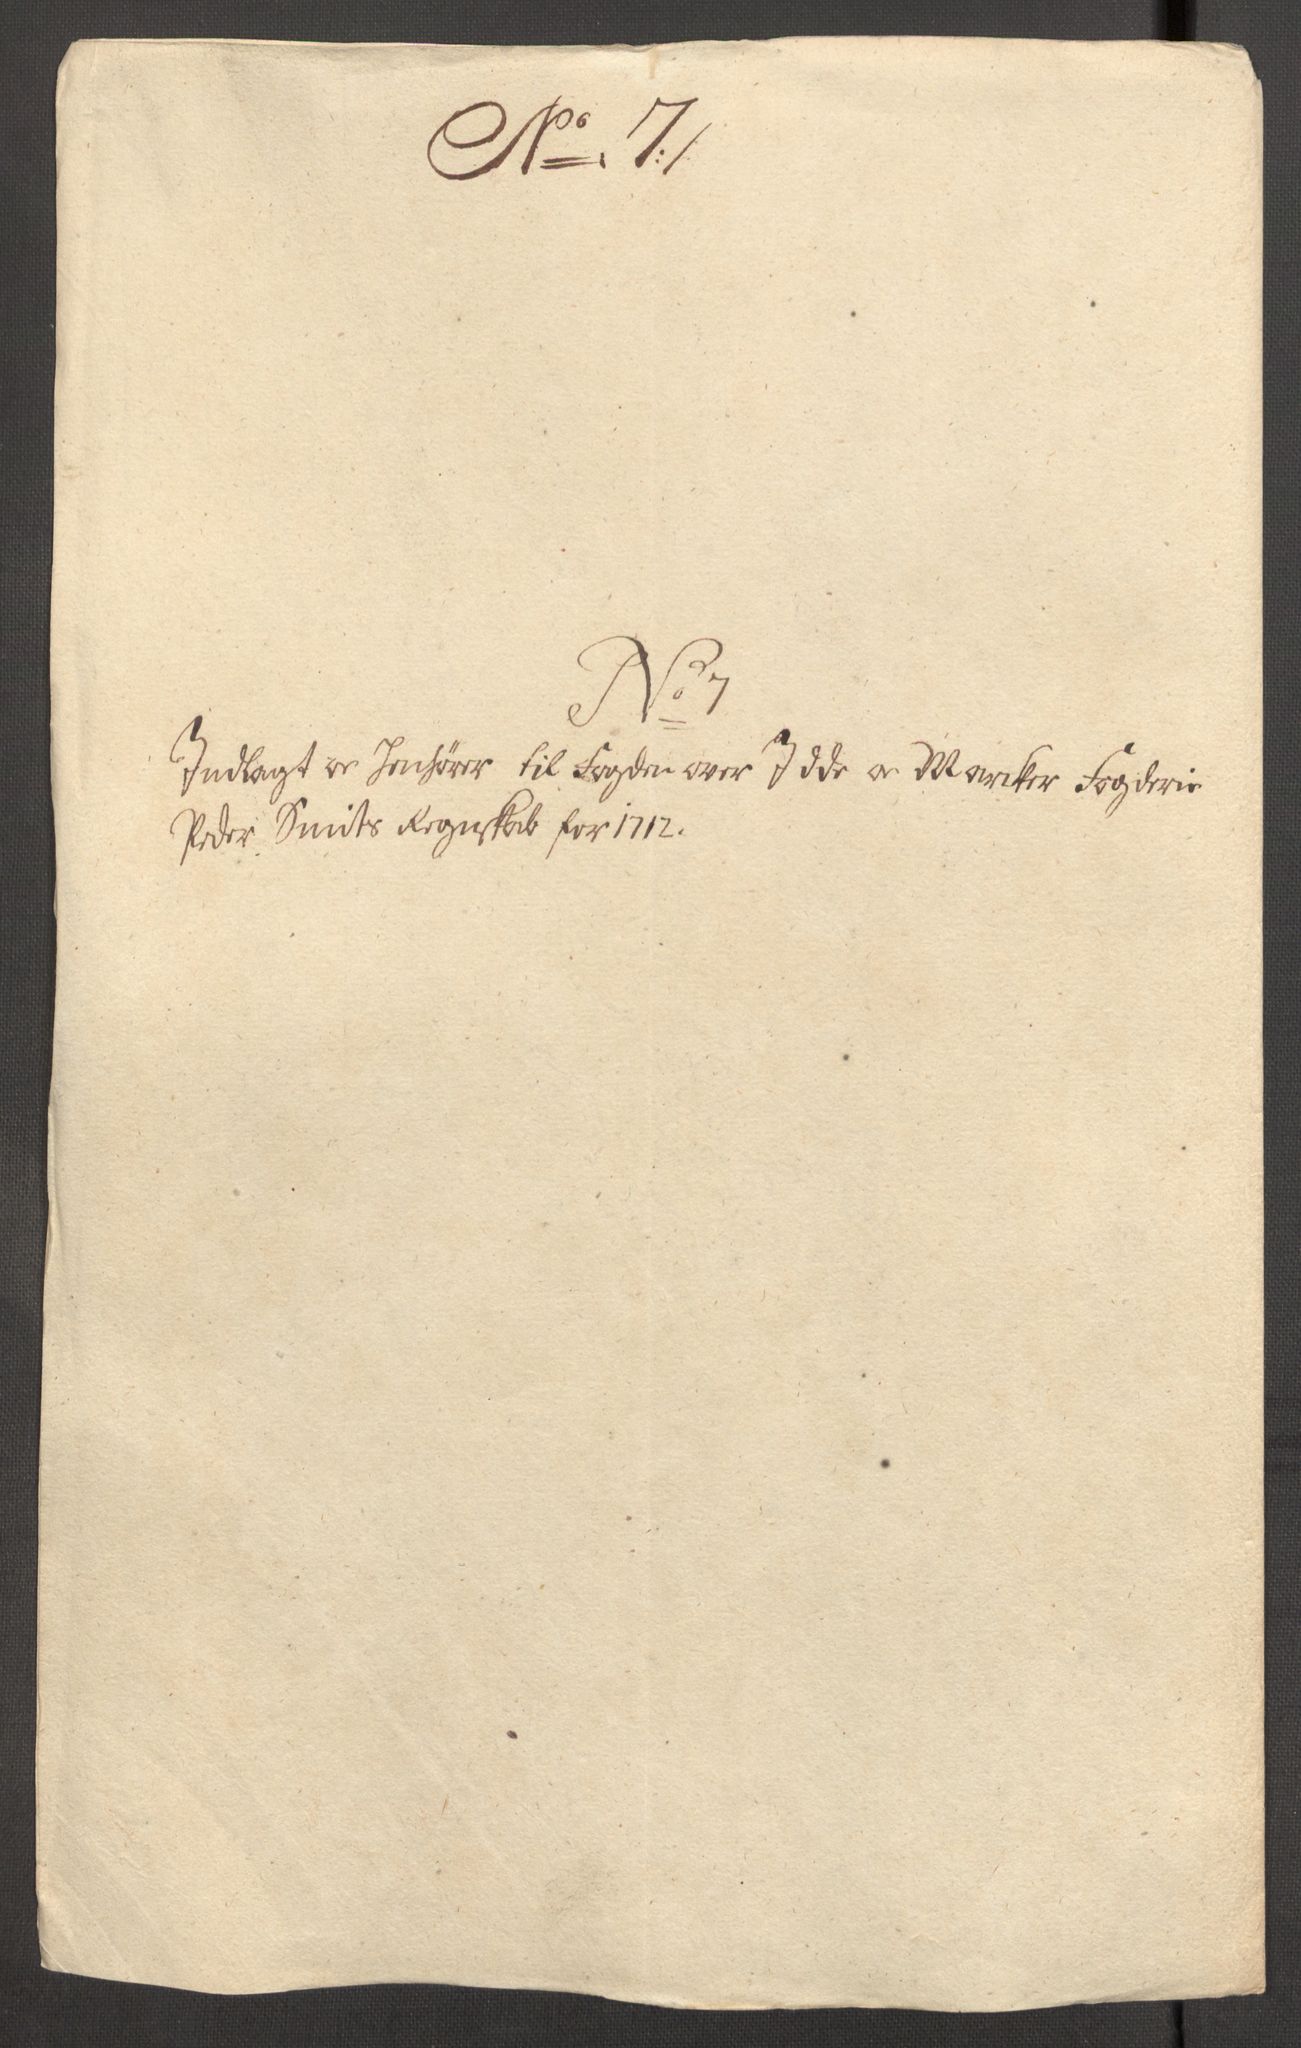 No. 7:/
No 7
Indlagt oc Henhörer til Fogden over Idde oc Marcker Fogderie
Peder Smits Regnskab for 1712.